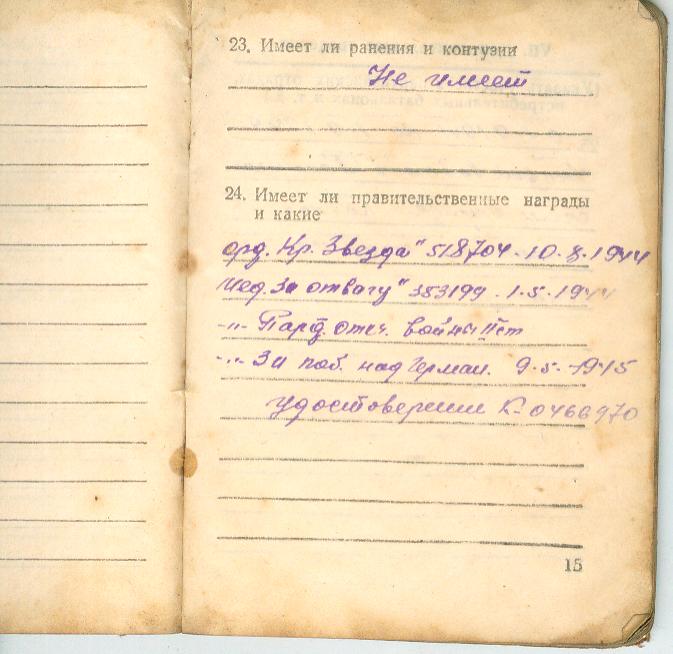 23. Имеет ли ранения и контузии
Не имеет
24. Имеет ли правительственные награды
и какие
орд. Кр. Звезда" 518704 - 10 - 8 - 1944
Мед. За отвагу" 353199 - 1 - 5 - 1944
-"- Парт. отеч. войны II ст
-"- За поб. над Герман. 9 - 5 - 1945
Удостоверении К-0466970
15